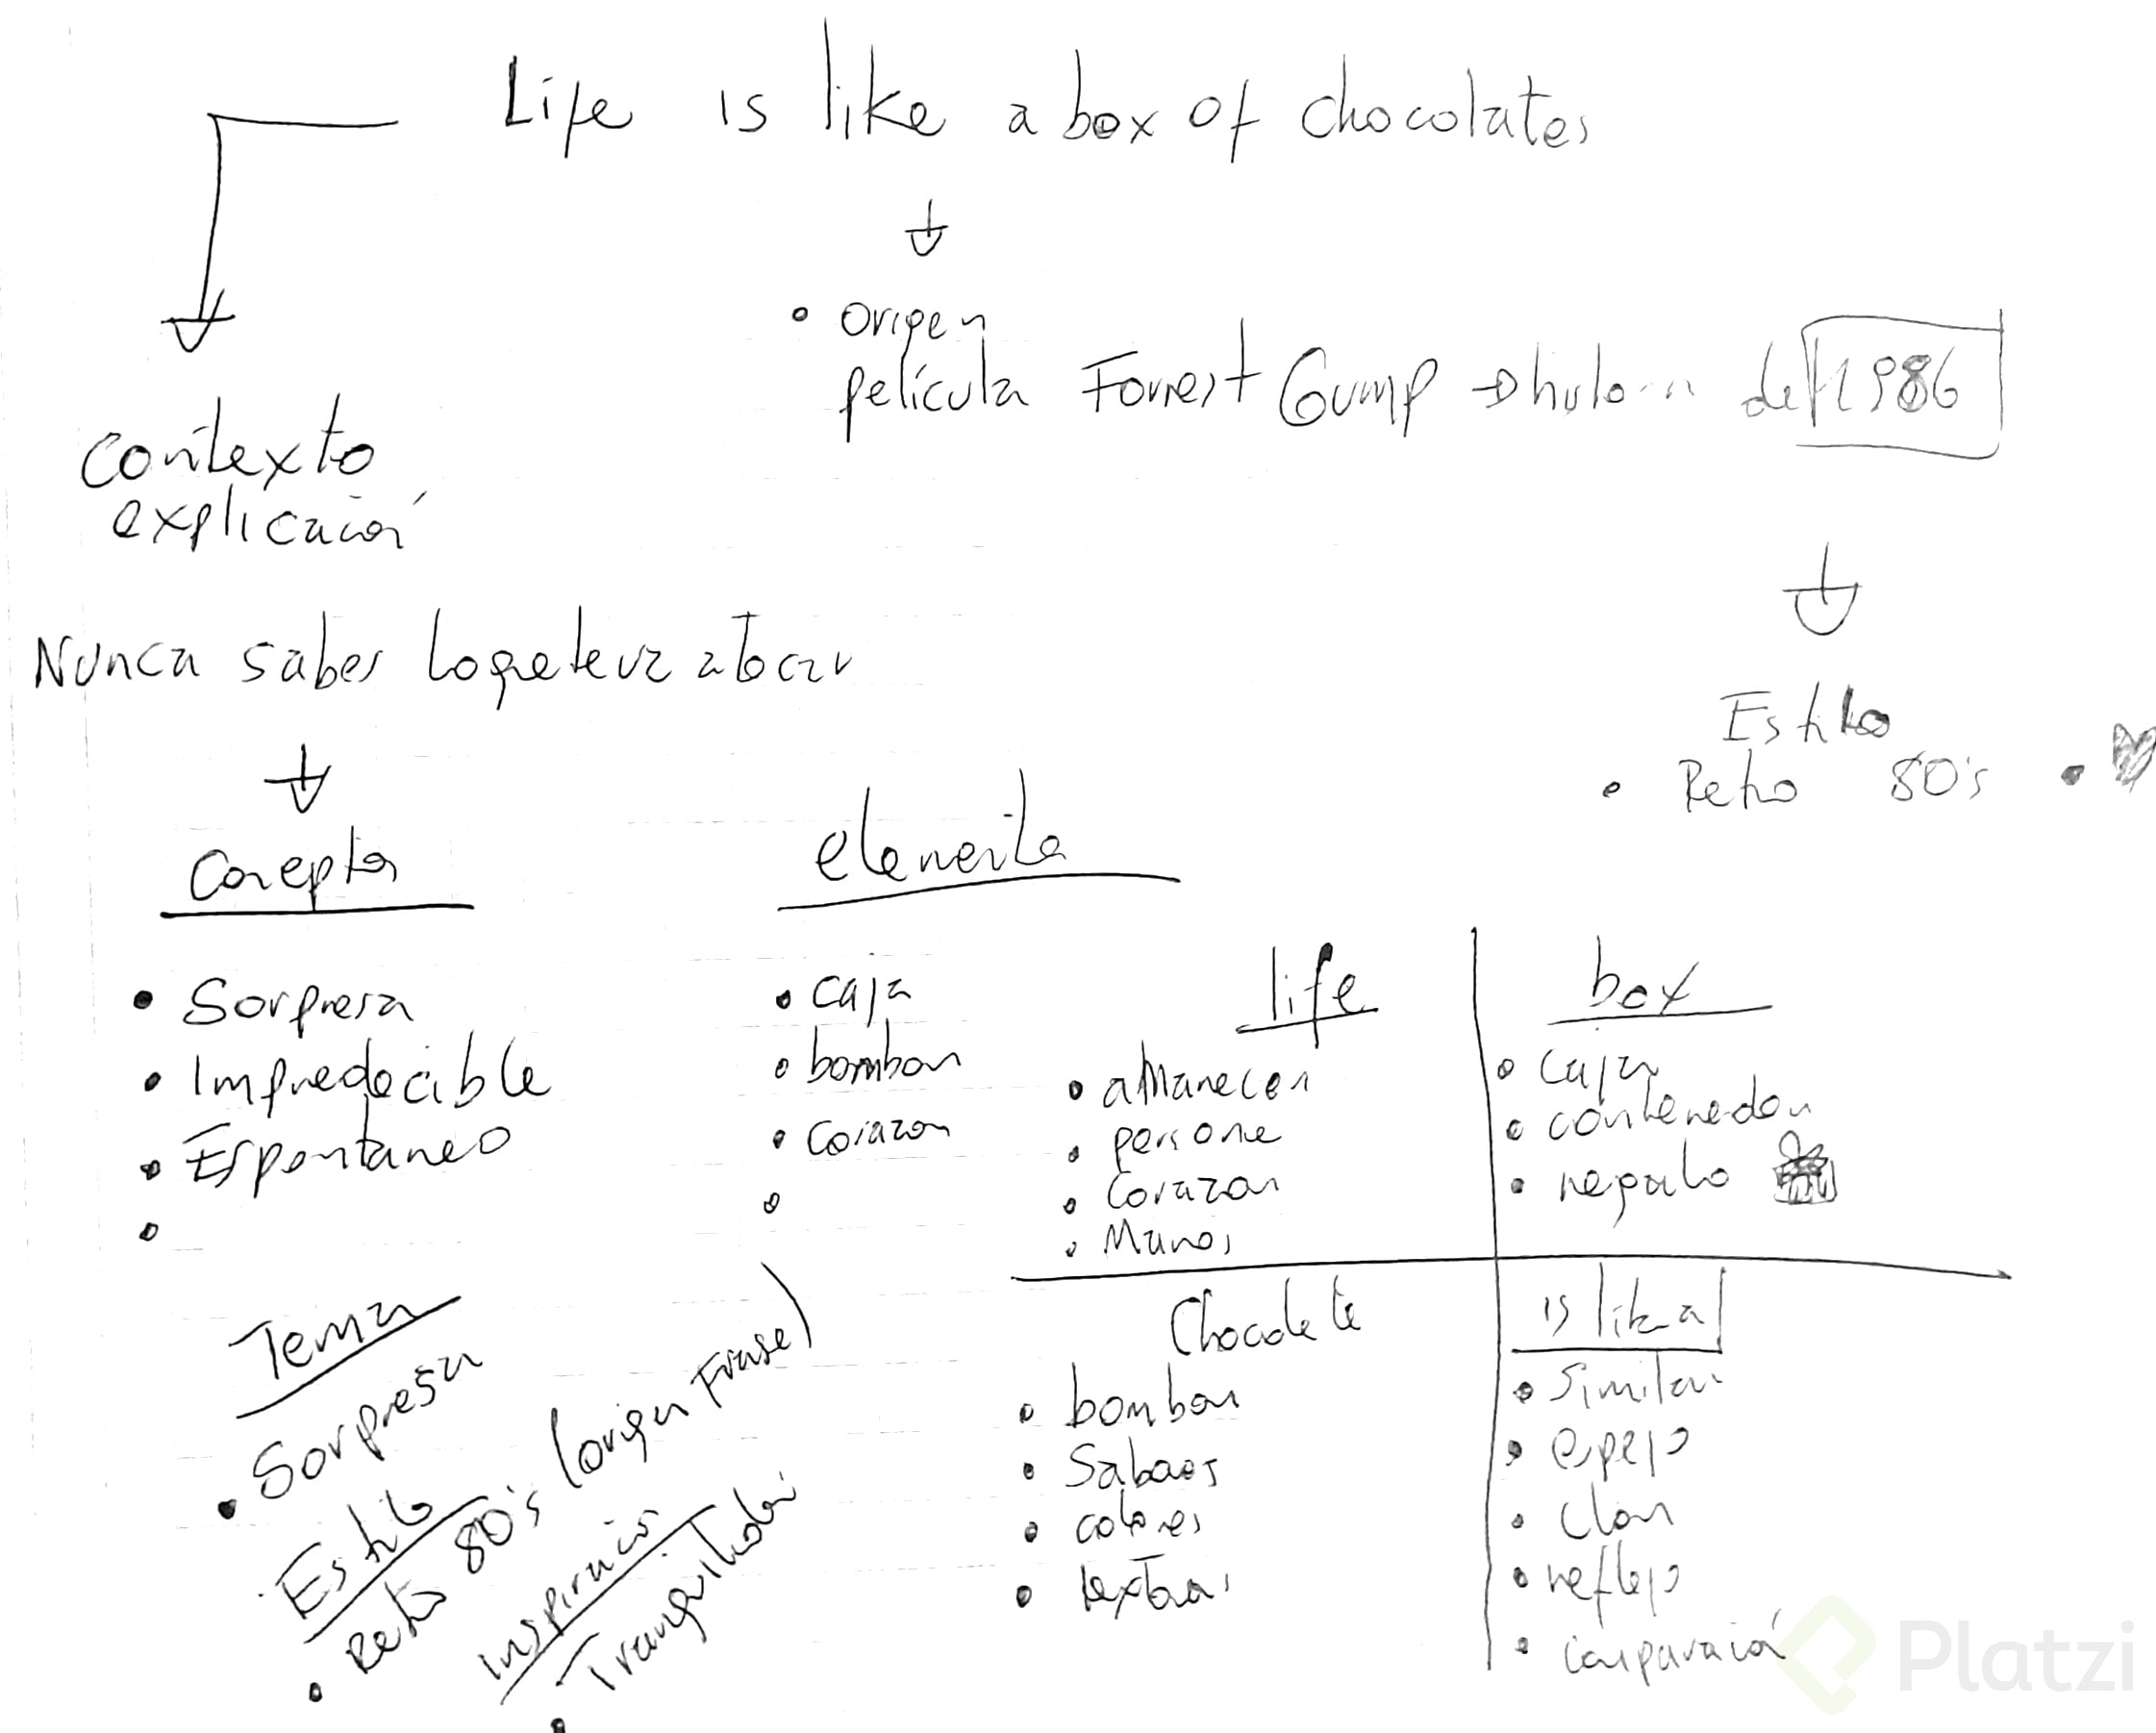 Life is like a box of chocolates
• Origen
película Forrest Gump → de 1986
contexto
explicación
Nunca sabes lo que te va a tocar
Estilo
• Retro 80's •
Conceptos
elementos
• Sorpresa
• Impredecible
• Espontaneo
• caja
• bombon
• Corazon
life
• amanecer
• persona
• Corazon
• Manos
box
• caja
• contenedor
• regalo
Chocolate
• bombon
• Sabores
• colores
• texturas
is like a
• Similar
• espejo
• Clon
• reflejo
• comparación
Tema
• Sorpresa
Estilo
• Retro 80's (origen Frase)
Inspiración
• Tranquilidad
Platzi